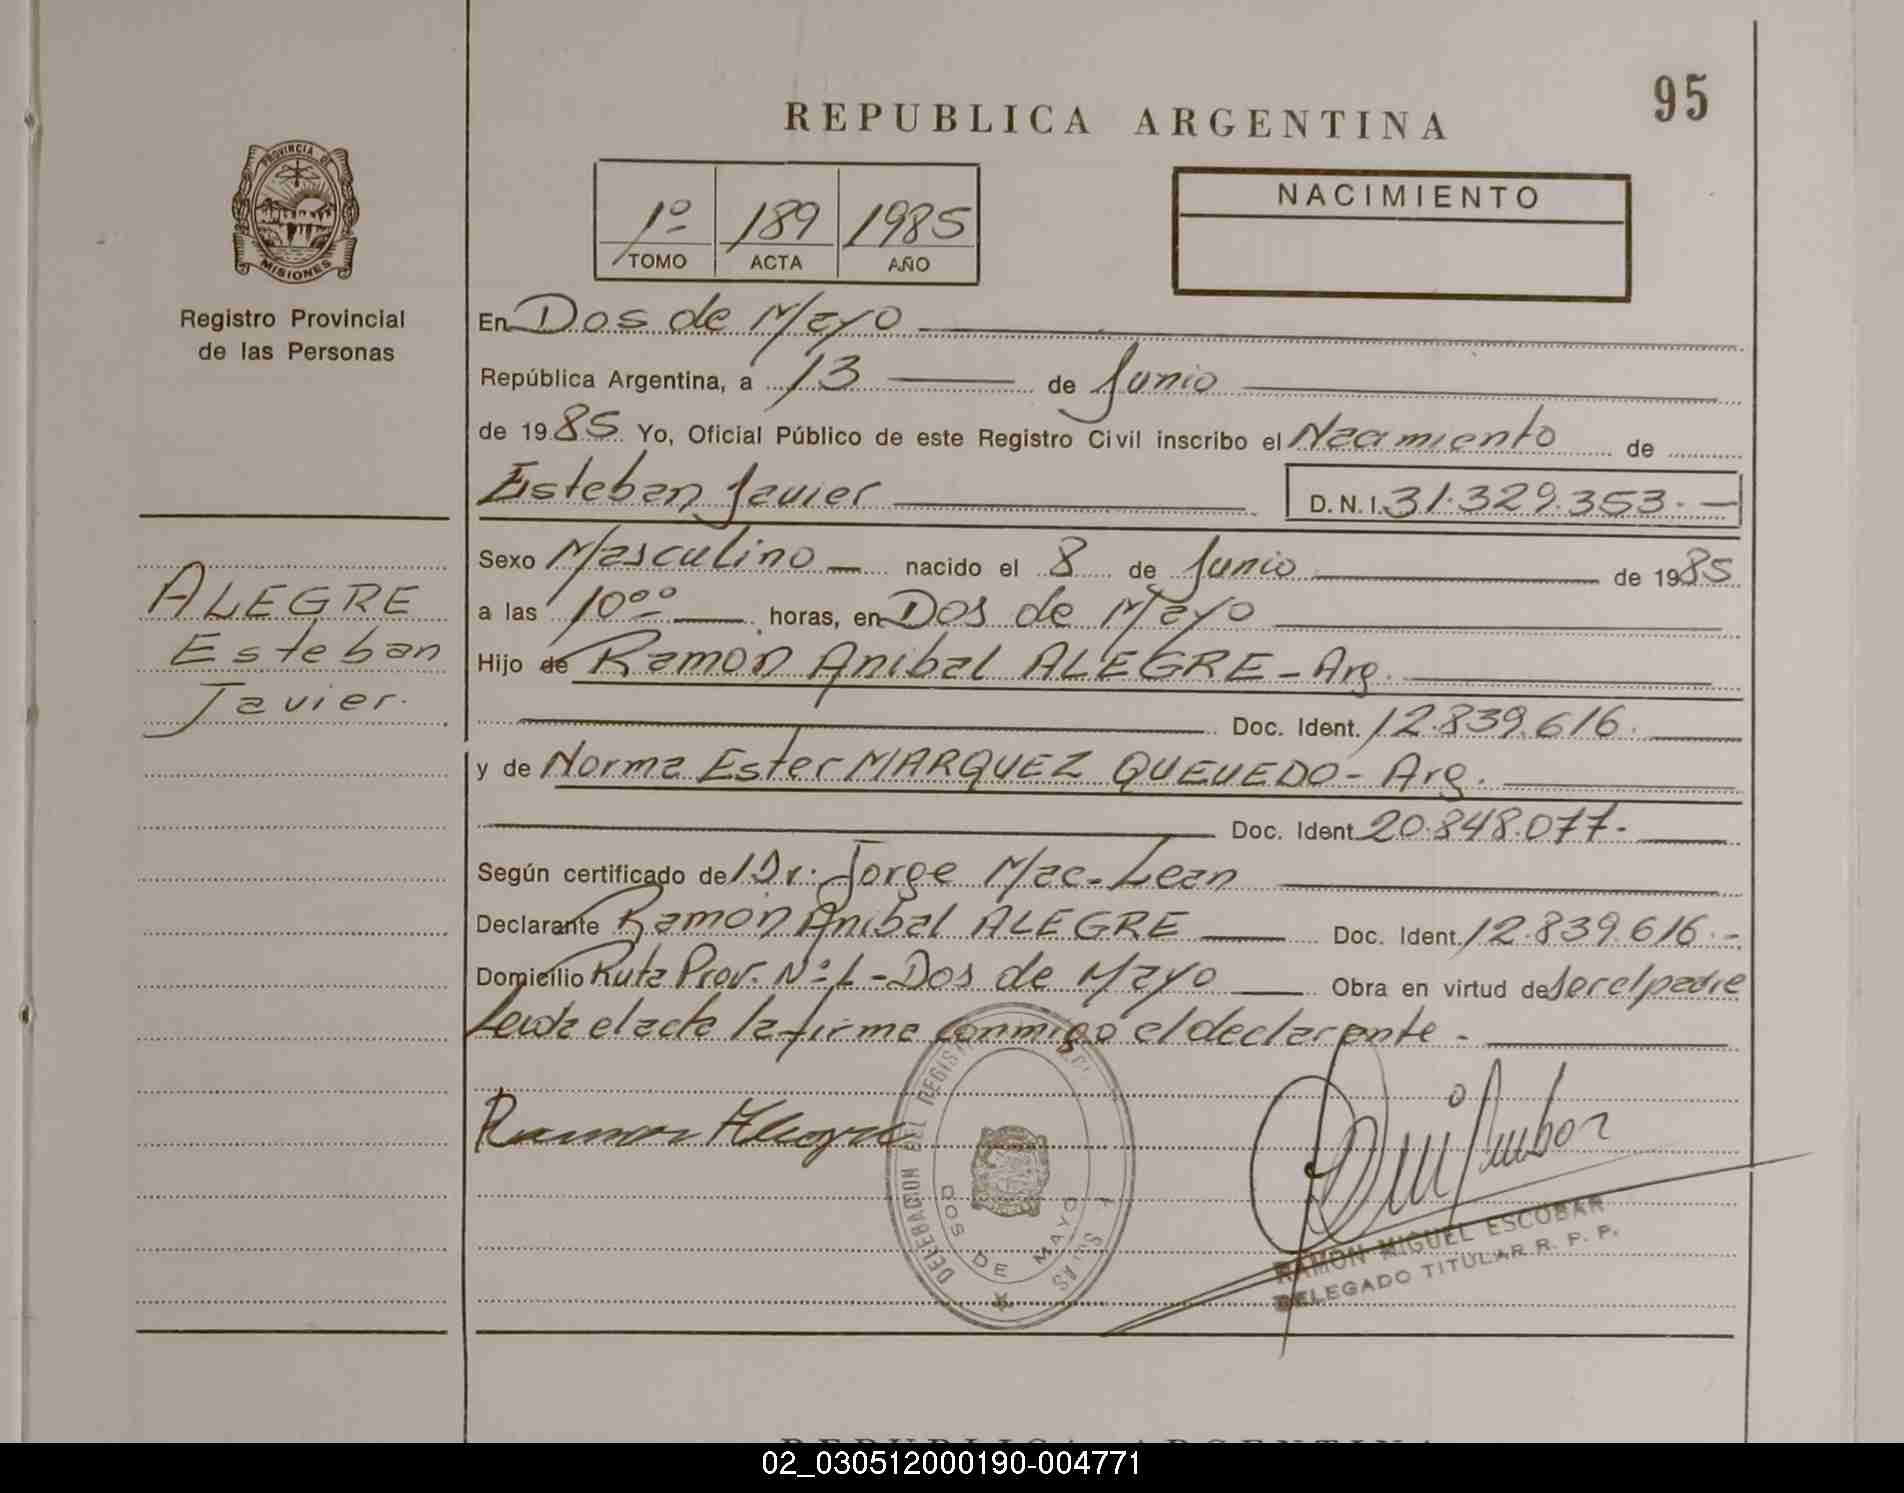 95
REPUBLICA ARGENTINA
PROVINCIA DE
MISIONES
Registro Provincial
de las Personas
1º 189 1985
TOMO ACTA AÑO
NACIMIENTO
En Dos de Mayo
República Argentina, a 13 de Junio
de 1985 Yo, Oficial Público de este Registro Civil inscribo el Nacimiento de
Esteban Javier D.N.I. 31.329.353.-
ALEGRE
Esteban
Javier.
Sexo Masculino nacido el 8 de Junio de 1985
a las 10ºº horas, en Dos de Mayo
Hijo de Ramon Anibal ALEGRE - Arg.
Doc. Ident. 12.839.616.
y de Norma Ester MARQUEZ QUEVEDO - Arg.
Doc. Ident. 20.848.077.-
Según certificado de Dr. Jorge Mac-Lean
Declarante Ramon Anibal ALEGRE Doc. Ident. 12.839.616.-
Domicilio Ruta Prov. Nº 1 - Dos de Mayo Obra en virtud de ser el padre
Leida el acta la firma conmigo el declarante.-
Ramon Alegre
DELEGACION DEL REGISTR
DOS DE MAYO
RAMON MIGUEL ESCOBAR
DELEGADO TITULAR R. P. P.
REPUBLICA ARGENTINA
02_030512000190-004771